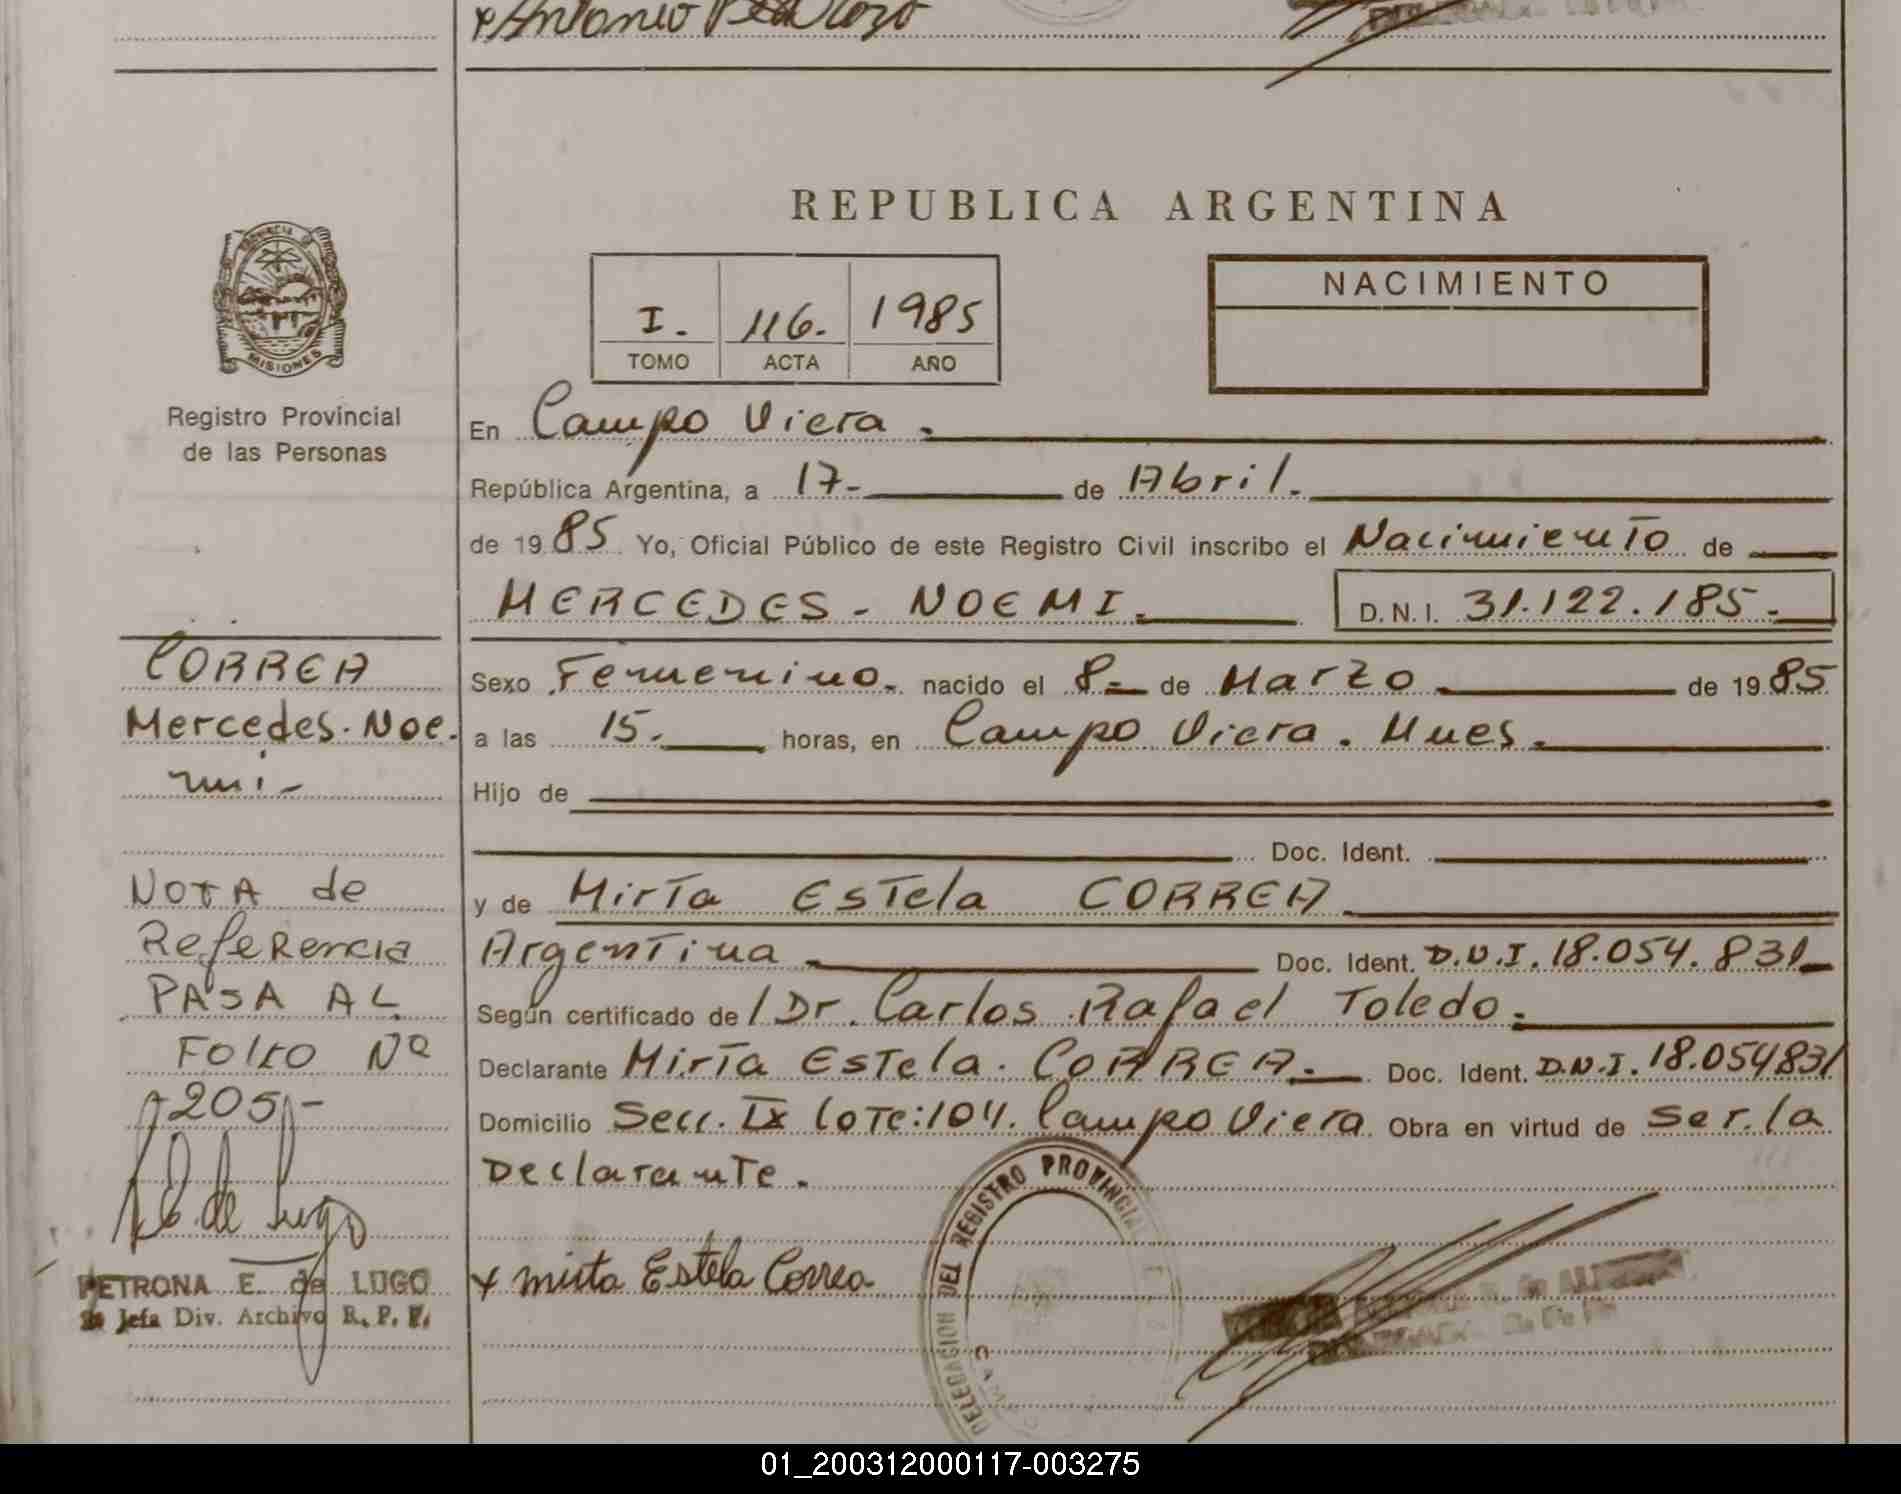 Antonio
REPUBLICA ARGENTINA
PROVINCIA DE
MISIONES
Registro Provincial
de las Personas
I. 116. 1985
TOMO ACTA AÑO
NACIMIENTO
En Campo Viera.
República Argentina, a 17- de Abril.
de 1985 Yo, Oficial Público de este Registro Civil inscribo el Nacimiento de
MERCEDES - NOEMI. D.N.I. 31.122.185.-
CORREA
Mercedes. Noe.
mi-
Sexo Femenino. nacido el 8- de Marzo de 1985
a las 15. horas, en Campo Viera. Mnes.
Hijo de
Doc. Ident.
y de Mirta Estela CORREA
Argentina Doc. Ident. D.N.I. 18.054.831-
Según certificado de / Dr. Carlos Rafael Toledo.
Declarante Mirta Estela. CORREA. Doc. Ident. D.N.I. 18.054831
Domicilio Secc. IX Lote:104. Campo Viera Obra en virtud de ser. la
Declarante.
NOTA de
Referencia
PASA AL
Folio Nº
205-
de Lugo
PETRONA E. de LUGO
Jefa Div. Archivo R. P. P.
x mirta Estela Correa
DELEGACION DEL REGISTRO PROVINCIAL
01_200312000117-003275